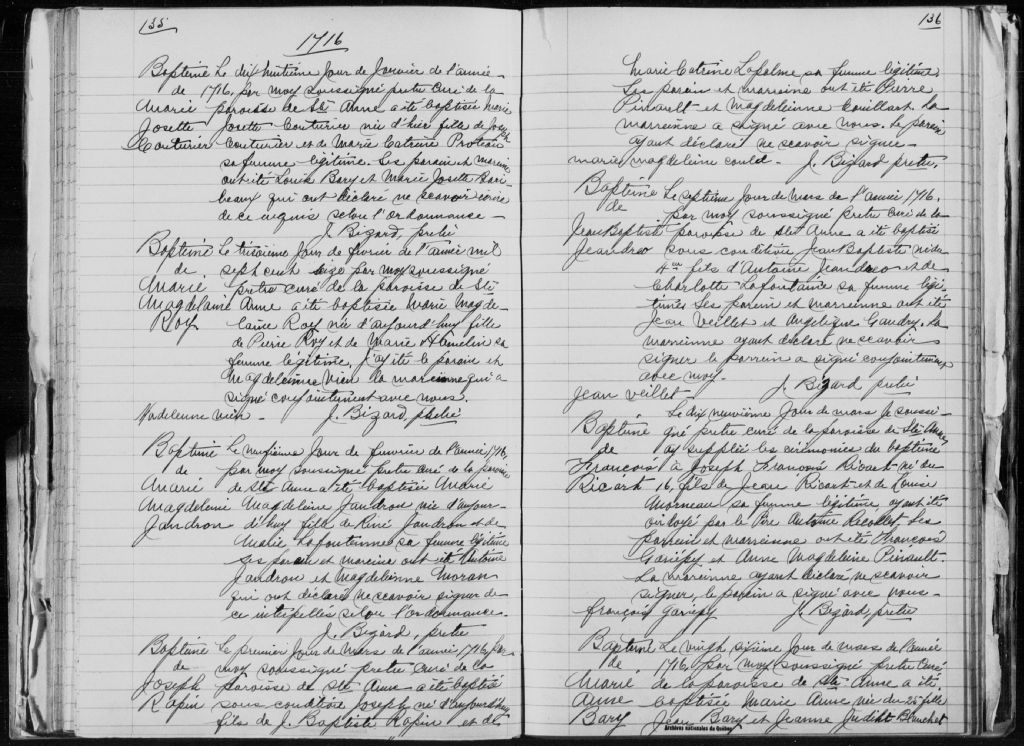 135
1716
Baptême Le dix huitième Jour de Janvier de l'année
de 1716, par moy soussigné pretre curé de la
Marie paroisse de Ste Anne a été baptisée Marie
Josette Josette Couturier née d'hier fille de Joseph
Couturier Couturier et de Marie Catrine Proteau
sa femme légitime. Les parain et maraine
ont été Louis Bary et Marie Josette Bari-
beaux qui ont déclaré ne scavoir signé
de ce requis selon l'Ordonnance -
J. Bizard, pretre
Baptême Le troisième Jour de fevrier de l'année mil
de sept cent seize par moy soussigné
Marie pretre curé de la paroisse de Ste
Magdelaine Anne a été baptisée Marie Magde-
Roy laine Roy née d'aujourd'huy fille
de Pierre Roy et de Marie Hamelin sa
femme légitime, J'ay été le parain et
Magdeleinne Vien la mareinne qui a
signé conjointement avec nous.
Madeleinne vien - J. Bizard, pretre
Baptême Le neufieme Jour de fevrier de l'année 1716,
de par moy soussigné Pretre Curé de la paroisse
Marie de Ste Anne a été baptisée Marie
Magdeleine Magdeleine Jandron née d'aujour-
Jandron d'huy fille de René Jandron et de
Marie Lafontenne sa femme légitime
Les parain et mareine ont été Antoine
Jandron et Magdeleinne Moran
qui ont déclaré ne scavoir signer de
ce intérpellés selon l'ordonnance -
J. Bizard, pretre
Baptême Le premier Jour de Mars de l'année 1716, par
de moy soussigné pretre Curé de la
Joseph paroisse de Ste Anne - a été baptisé
Rapin sous condition Joseph né d'aujourd'huy
fils de J. Baptiste Rapin et de
136
Marie Catrine Lafalme sa femme légitime
Les parain et marraine ont été Pierre
Pinault et Magdeleinne Couillart. La
marreinne a signé avec nous. Le parain
ayant déclaré ne scavoir signer -
marie magdeleine could - J. Bizard pretre.
Baptême Le septième Jour de Mars de l'année 1716.
de par moy soussigné Pretre Curé de la
Jean Baptiste paroisse de Ste Anne a été baptisé
Jeandro sous condition Jean Baptiste né du
4em fils d'Antoine Jeandro et de
Charlotte Lafontaine sa femme légi-
times Les parein et marrienne ont été
Jean Veillet et Angelique Gaudry. La
marrienne ayant déclaré ne scavoir
signer le parrein a signé conjointement
avec moy.
Jean Veillet - J. Bizard pretre
Le dix neuvième Jour de mars Je soussi-
Baptême gné pretre curé de la paroisse de Ste Anne
de ay supplée les cérémonies du baptême
Francois à Joseph François Ricart né du
Ricart 16, fils de Jean Ricart et de Louise
Morneau sa femme légitime ayant été
ondoyé par le Père Antoine Récollet Les
parrein et marrienne ont été François
Gariépy et Anne Magdeleine Pinault.
La mareinne ayant déclaré ne scavoir
signer, le parain a signé avec nous -
françois gariépy J. Bizard pretre
Baptême Le vingt sixième Jour de mars de l'année
de 1716, par moy soussigné pretre curé
Marie de la paroisse de Ste Anne a été.
Anne baptisée Marie Anne née du 25 fille
Bary Jean Bary et Jeanne Judith Blanchet
Archives nationales du Québec